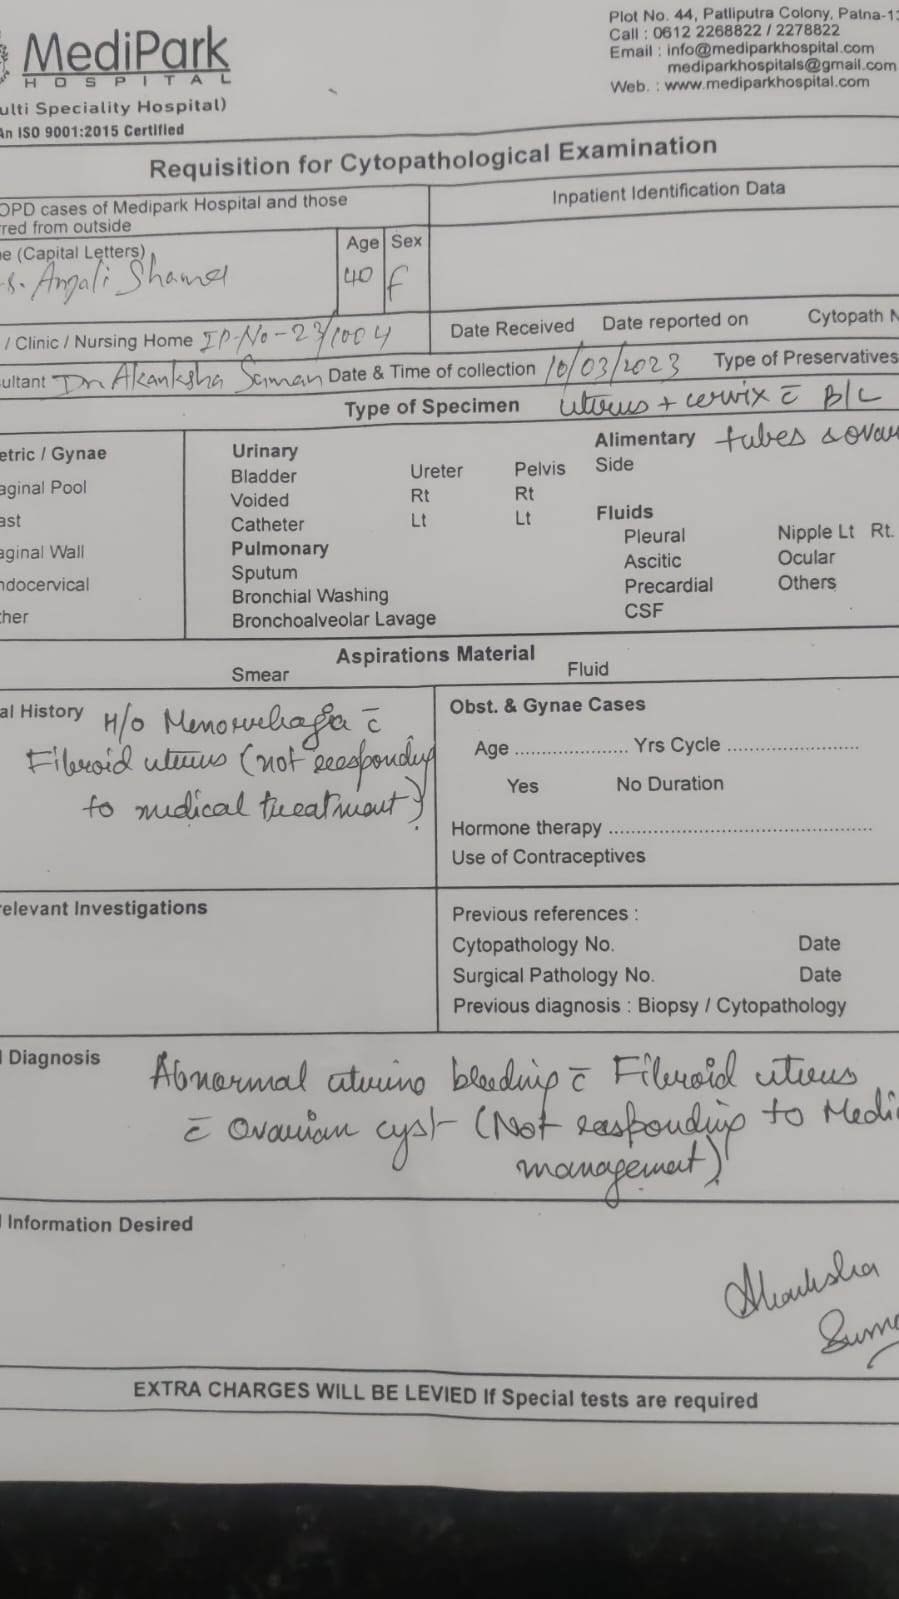 MediPark
HOSPITAL
ulti Speciality Hospital)
An ISO 9001:2015 Certified
Plot No. 44, Patliputra Colony, Patna-1
Call : 0612 2268822 / 2278822
Email : info@mediparkhospital.com
mediparkhospitals@gmail.com
Web. : www.mediparkhospital.com
Requisition for Cytopathological Examination
OPD cases of Medipark Hospital and those
red from outside
Inpatient Identification Data
e (Capital Letters) Age Sex
s. Anjali 40 f
/ Clinic / Nursing Home IP-No-23/1004
Date Received Date reported on Cytopath N
ultant Dr Akanksha Suman Date & Time of collection 10/03/2023 Type of Preservatives
Type of Specimen uterus + cervix c̄ B/L
tubes & ova
etric / Gynae
aginal Pool
ast
aginal Wall
ndocervical
her
Urinary
Bladder Ureter Pelvis
Voided Rt Rt
Catheter Lt Lt
Pulmonary
Sputum
Bronchial Washing
Bronchoalveolar Lavage
Alimentary
Side
Fluids
Pleural Nipple Lt Rt.
Ascitic Ocular
Precardial Others
CSF
Aspirations Material
Smear Fluid
al History H/o Menorrhagia c̄
Fibroid uterus (not responding
to medical treatment)
Obst. & Gynae Cases
Age .................... Yrs Cycle .......................
Yes No Duration
Hormone therapy ..............................................
Use of Contraceptives
elevant Investigations
Previous references :
Cytopathology No. Date
Surgical Pathology No. Date
Previous diagnosis : Biopsy / Cytopathology
l Diagnosis Abnormal uterine bleeding c̄ Fibroid uterus
c̄ Ovarian cyst (Not responding to Medi
management)
l Information Desired
Akanksha
Suma
EXTRA CHARGES WILL BE LEVIED If Special tests are required